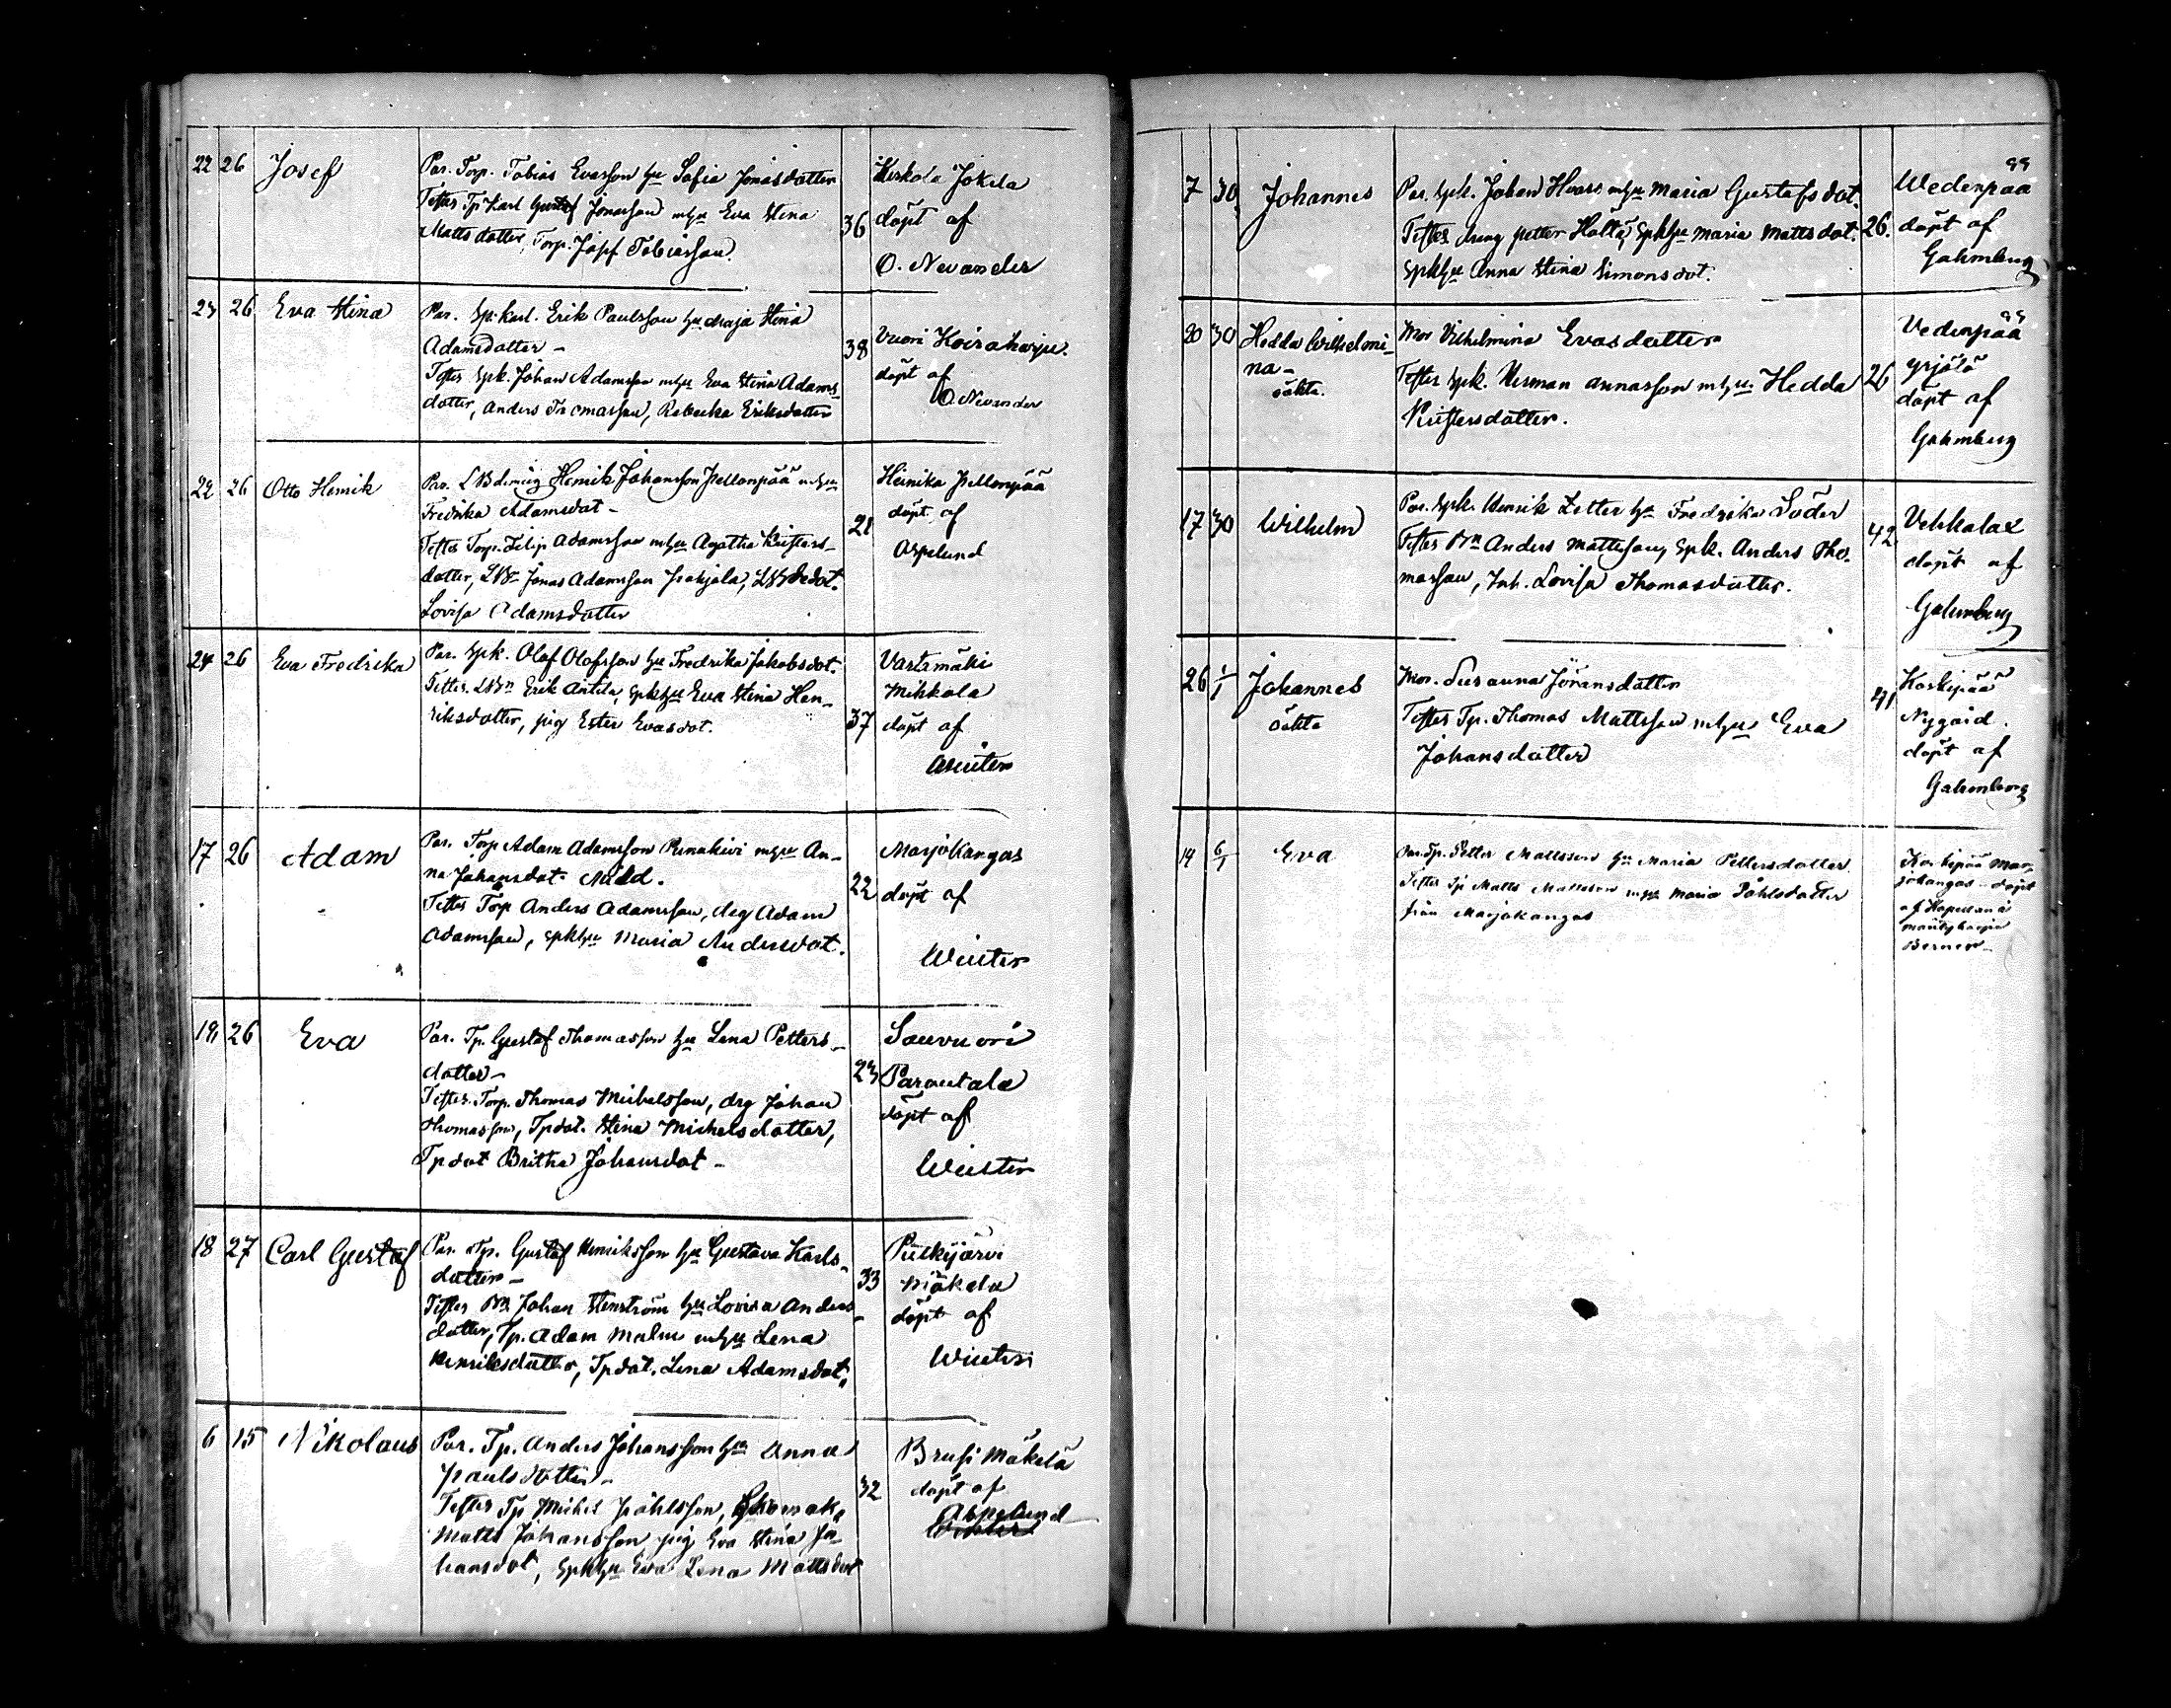 22 26 Josef Par. Torp. Tobias Evasson hu Sofia Jonasdotter
Testes Tp Karl Gustaf Jonasson mhu Eva Stina
Matts dotter, Torp. Josef Tobiasson
36 Kirkola Jokela
döpt af
O. Nevander
23 26 Eva Stina Par. Sp.karl. Erik Paulsson hu Maja Stina
Adamsdotter –
Testes Spk. Johan Adamsson mhu Eva Stina Adams-
dotter, Anders Thomasson, Rebecka Eriksdotter
38 Vuori Koiraharju.
döpt af
O. Nevander
22 26 Otto Henrik Par. Henrik Johansson Pellonpää mhu
Fredrika Adamsdot –
Testes Torp. Filip Adamsson mhu Agatha Kristers-
dotter, LBn Jonas Adamsson Pohjola,
Lovisa Adamsdotter
21 Heinika Pellonpää
döpt af
Aspelund
24 26 Eva Fredrika Par. Spk. Olof Olofsson hu Fredrika Jakobsdot.
Testes. LBn Erik Antila, Spkhu Eva Stina Hen-
riksdotter, pig Ester Evasdot.
37 Vartsmäki
Mikkola
döpt af
Winter
17 26 Adam Par. Torp Adam Adamsson mhu An-
na Johansdot.
Testes Torp Anders Adamsson, drg Adam
Adamsson, Spkhu Maria Andersdot.
22 Marjokangas
döpt af
Winter
19 26 Eva Par. Tp. Gustaf Thomasson hu Lena Petters-
dotter –
Testes. Torp. Thomas Michelsson, drg Johan
Thomasson, Tpdot. Stina Michelsdotter,
Tpdot Britha Johansdot –
23 Sauvuori
Parautala
döpt af
Winter
18 27 Carl Gustaf Par. Tp. Gustaf Henriksson hu Gustava Karls-
dotter –
Testes Bn Johan Stenström hu Lovisa Anders-
dotter, Tp. Adam Malm mhu Lena
Henriksdotter, Tpdot. Lena Adamsdot.
33
Mäkelä
döpt af
Winter
6 15 Nikolaus Par. Tp. Anders Johansson hu Anna
Paulsdotter –
Testes Tp Michel Påhlsson,
Matts Johansson pig Eva Stina Jo-
hansdot, Spkhu Eva Lena Mattsdot
32 Brusi Mäkelä
döpt af
Aspelund
7 30 Johannes Par. Spk. Johan mhu Maria Gustafsdot.
Testes dreng Petter Holta, Spkhu Maria Mattsdot.
Spkhu Anna Stina Simonsdot.
26. Wedenpää
döpt af
Gahmberg
20 30 Hedda Wilhelmi-
na –
oäkta.
Mor Vilhelmina Evasdotter
Testes Spk. Herman Annasson mhu Hedda
Kristersdotter.
26 Vedenpää
Yrjölä
döpt af
Gahmberg
17 30 Wilhelm Par. Spk. Henrik Zetter hu Fredrika Söder
Testes Bn Anders Mattsson, Spk. Anders Tho-
masson, Inh. Lovisa Thomasdotter.
42 Vehkalax
döpt af
Gahmberg
26 1/1 Johannes
oäkta
Mor. Susanna Jöransdotter
Testes Tp. Thomas Mattsson mhu Eva
Johansdotter
41 Koskipää
Nygård.
döpt af
Gahmberg
14 6/1 Eva Par. Tp. Petter Mattsson hu Maria Pettersdotter
Testes Tp Matts Mattsson mhu Maria Påhlsdotter
från Marjokangas
Koskipää Mar-
jokangas – döpt
af
Berner –